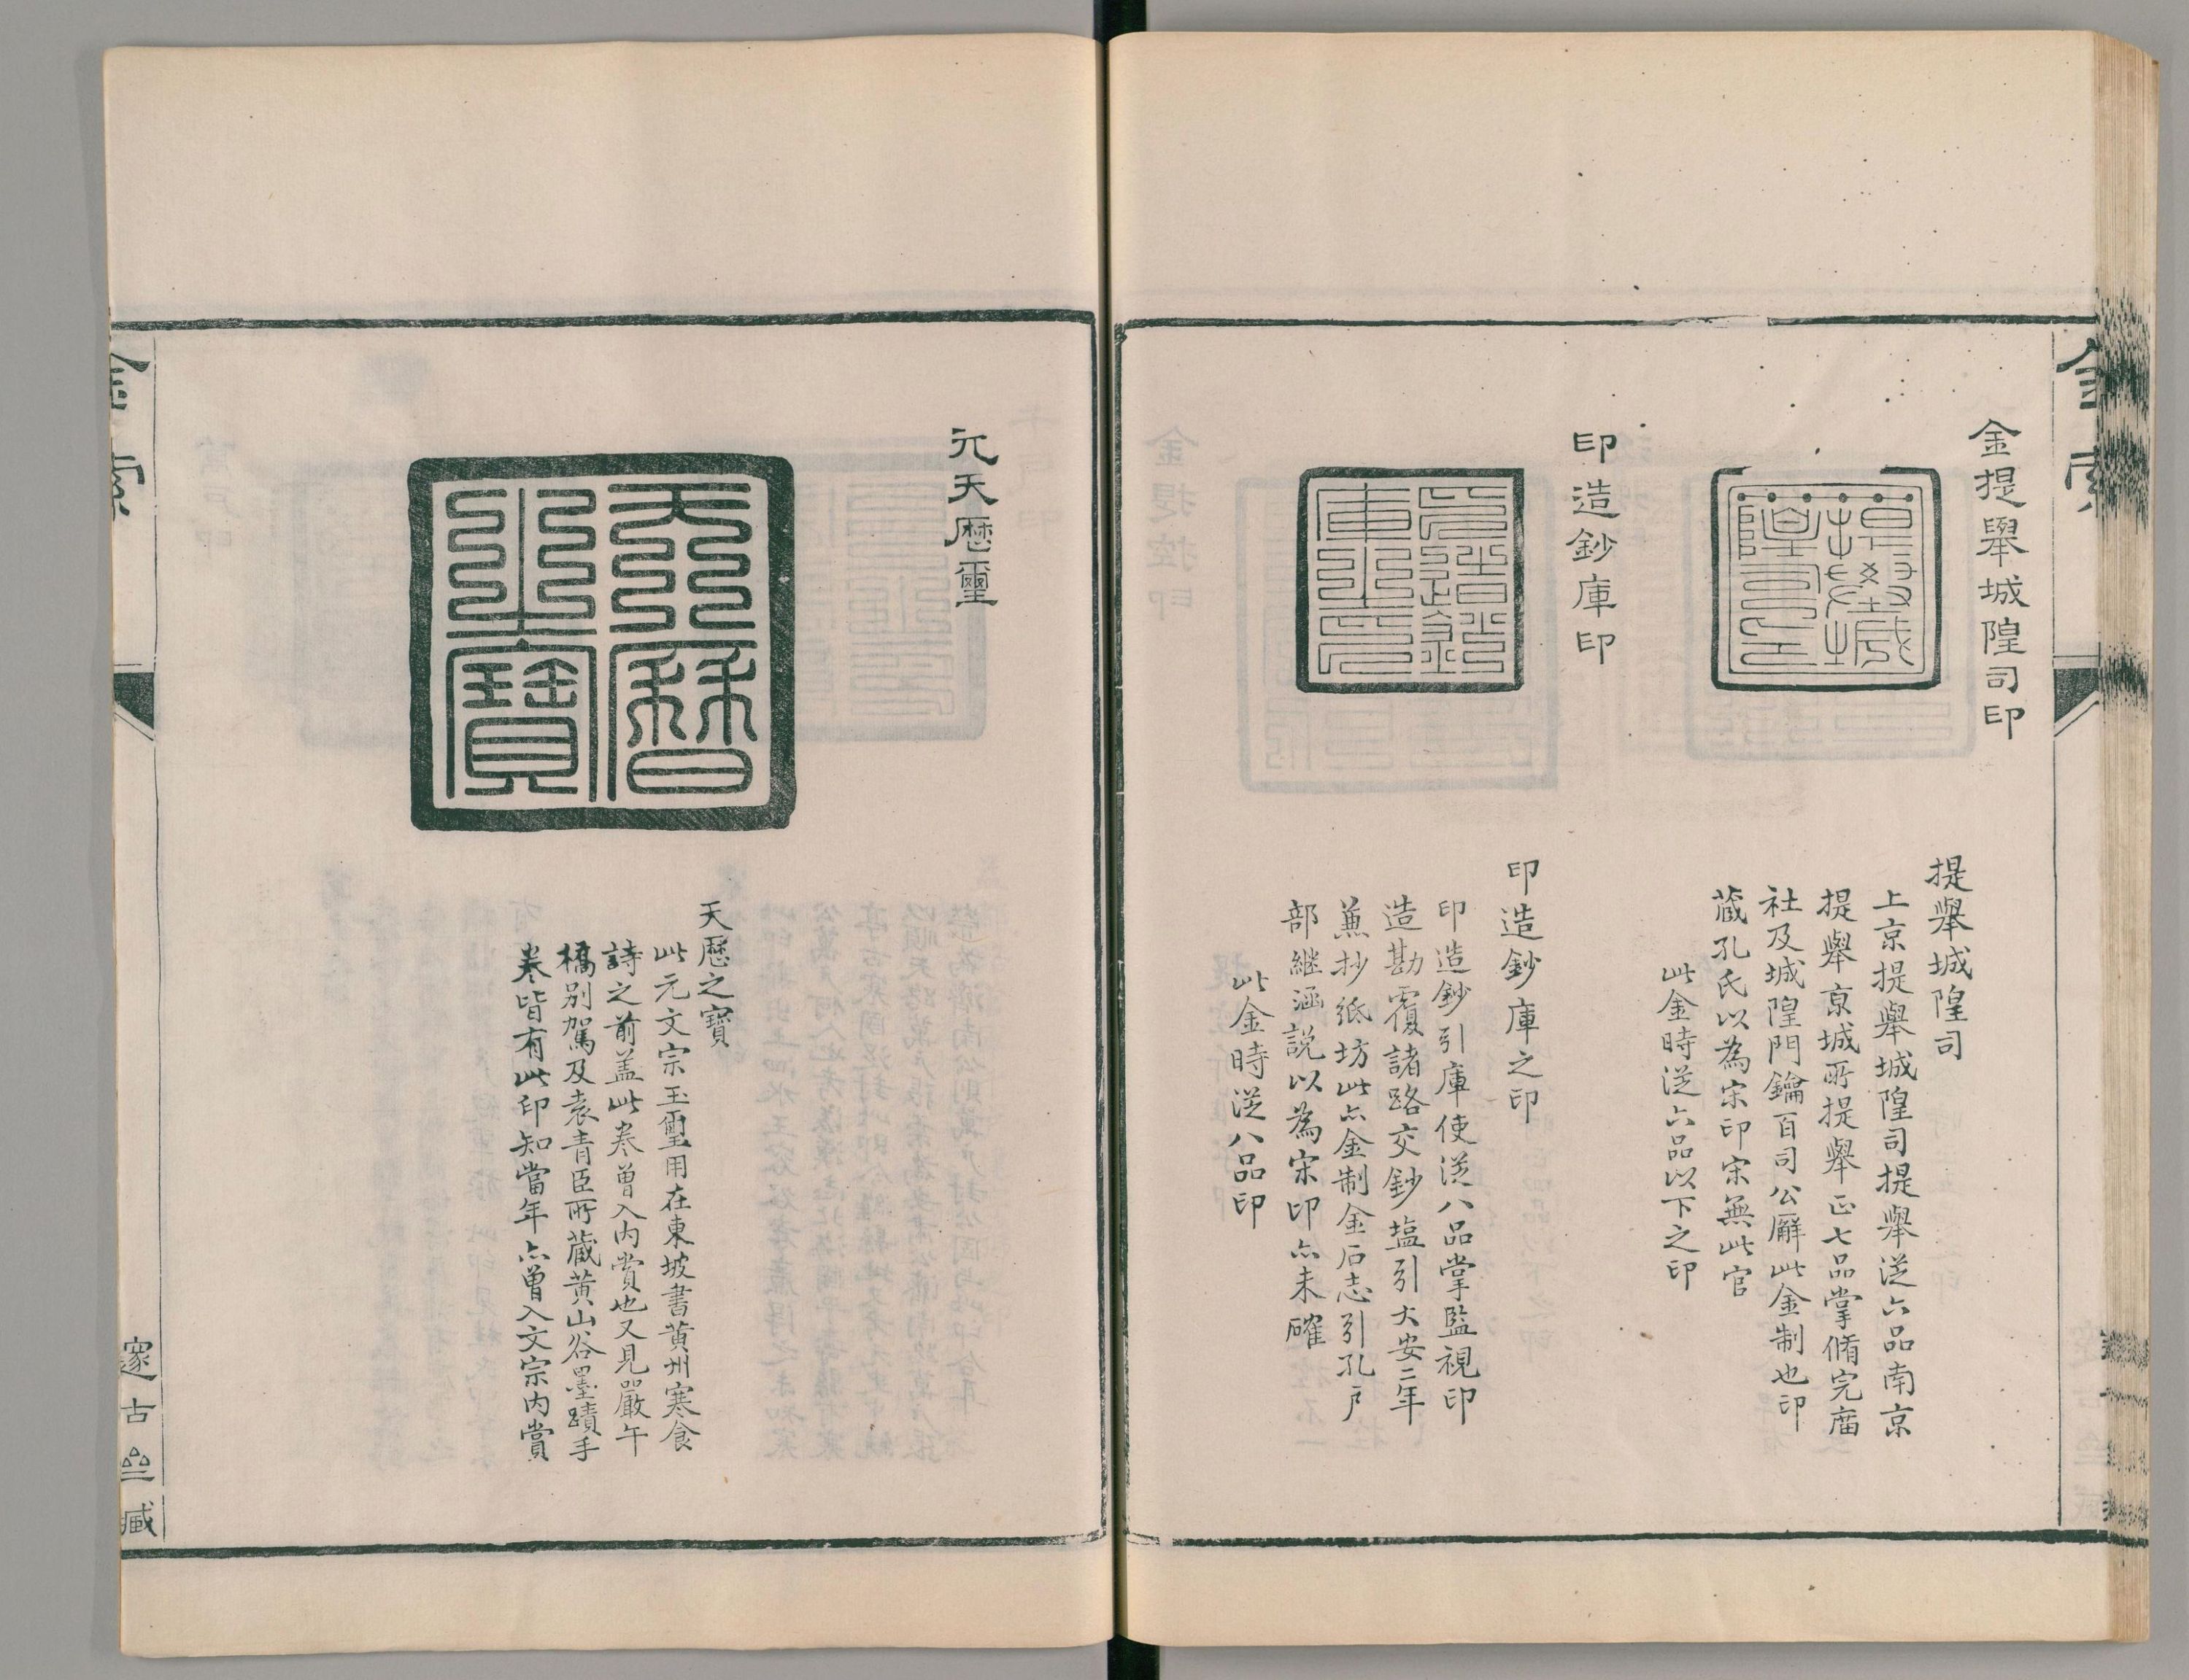 金索
金提舉城隍司印
提舉城隍司
上京提舉城隍司提舉從六品南京
提舉京城所提舉正七品掌脩完廟
社及城隍門鑰百司公廨此金制也印
藏孔氏以為宋印宋無此官
此金時從六品以下之印
印造鈔庫印
印造鈔庫之印
印造鈔引庫使從八品掌監視印
造勘覆諸路交鈔塩引大安二年
兼抄紙坊此亽金制金石志引孔戶
部繼涵説以為宋印亽未確
此金時從八品印
元天厯璽
天曆之寶
天厯之寶
此元文宗玉璽用在東坡書黄州寒食
詩之前盖此卷曾入内賞也又見嚴午
橋别駕及袁青臣所藏黄山谷墨蹟手
卷皆有此印知當年亽曾入文宗内賞
金索
邃古亝臧